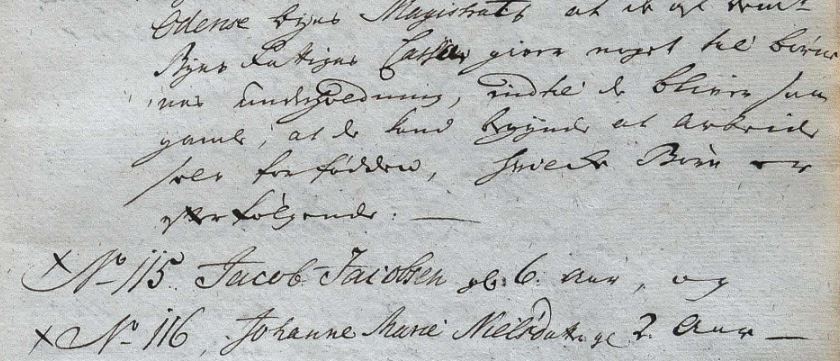 Odense Byes Magistrat, at de af bemte
Byes Fattiges Casse giver noget til børne
nes underholdning, indtil de bliver saa
gamle, at de kand begynde at arbeide
selv for føden, hvilcke Børn er
efterfølgende: —
× No 115. Jacob Jacobsen gl: 6. aar, og
× No 116, Johanne Marie Nielsdatt. gl 2. Aar —